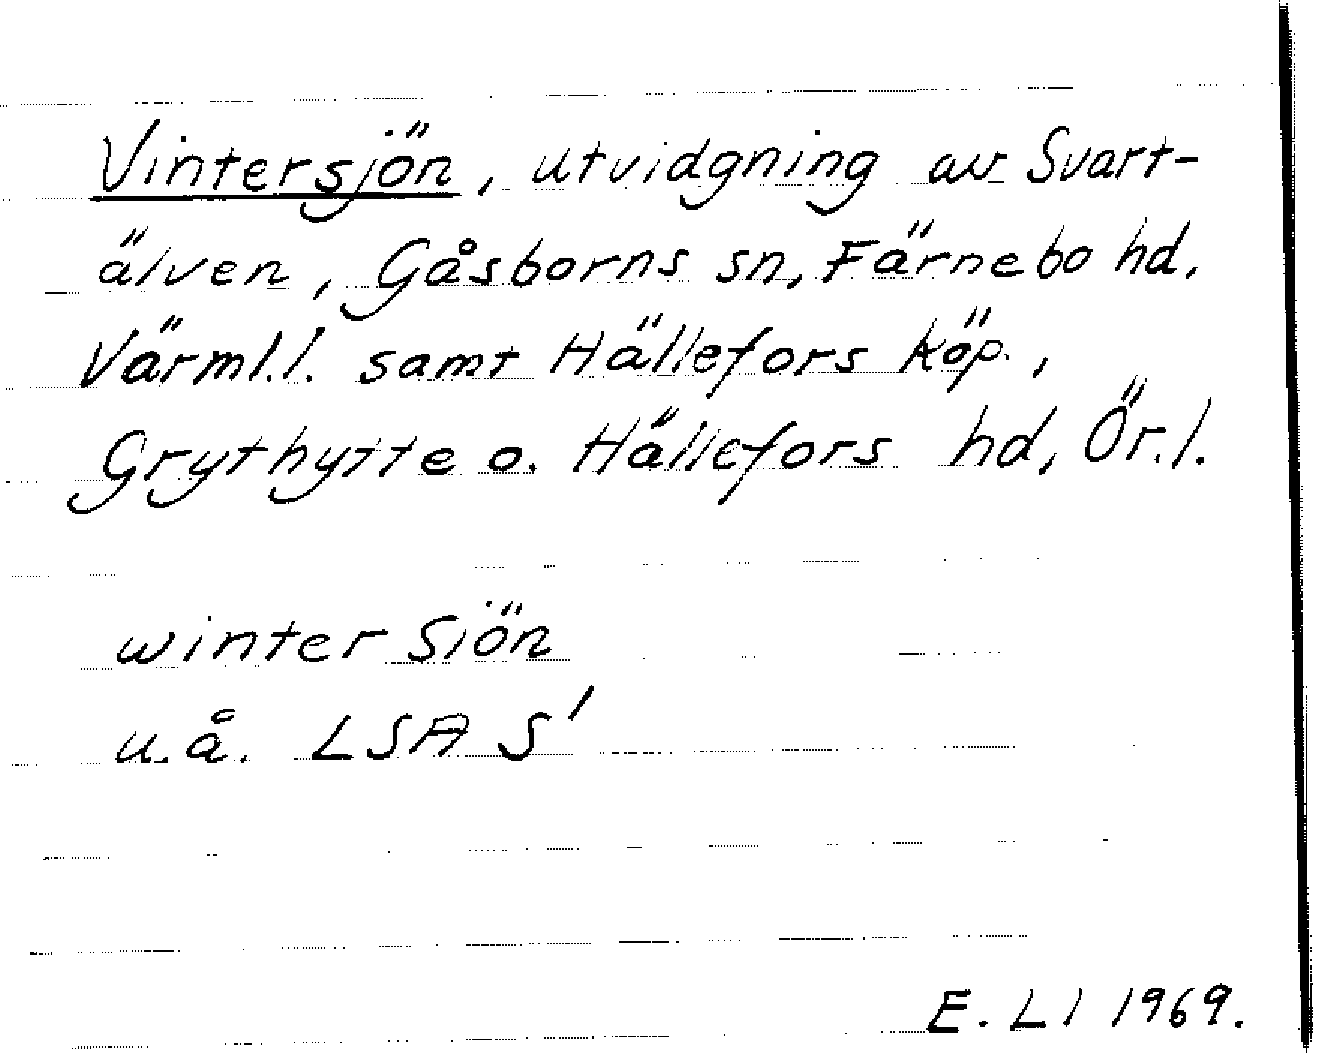 Vintersjön, utvidgning av Svart-
älven, Gåsborns sn, Färnebo hd.
Värml.l. samt Hällefors köp.,
Grythytte o. Hällefors hd, Ör.l.
winter Siön
u.å. LSA S'
E. Ll 1969.